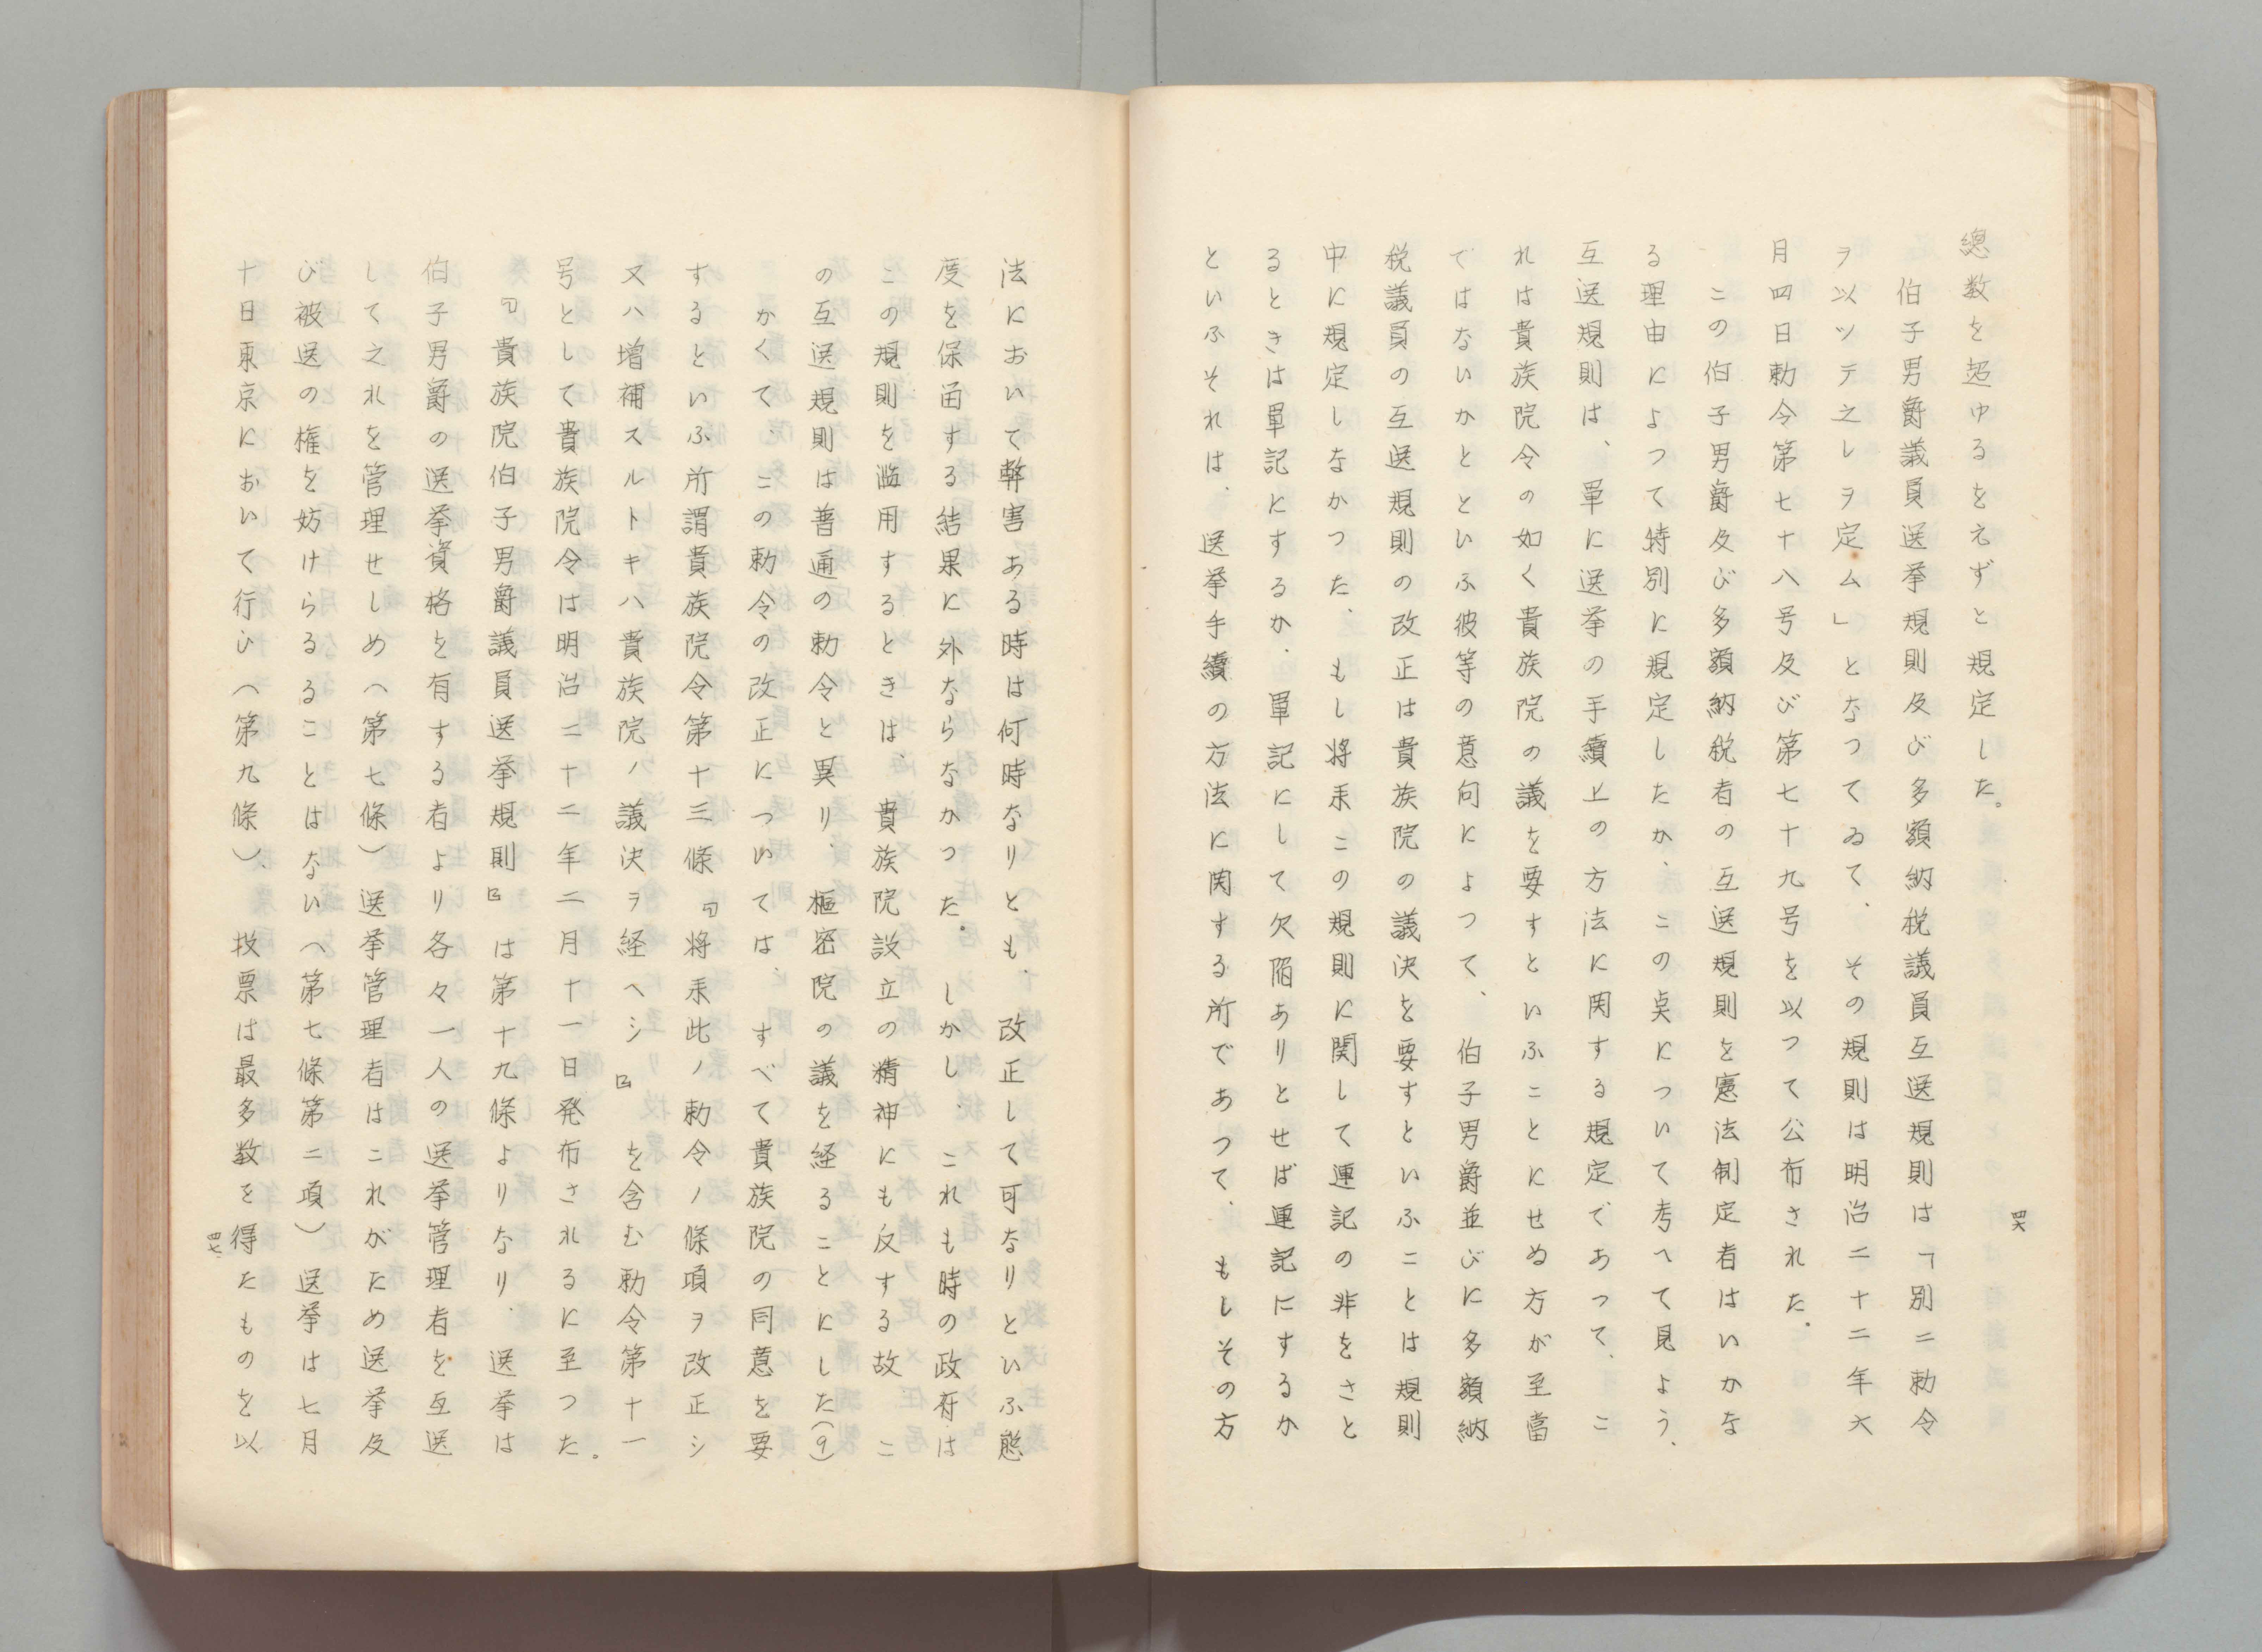 總数を超ゆるをえずと規定した。
伯子男爵議員選挙規則及び多額納税議員互選規則は「別ニ勅令
ヲ以ツテ之レヲ定ム」となつてゐて、その規則は明治二十二年六
月四日勅令第七十八号及び第七十九号を以つて公布された。
この伯子男爵及び多額納税者の互選規則を憲法制定者はいかな
る理由によつて特別に規定したか、この点について考へて見よう、
互選規則は、単に選挙の手續上の方法に関する規定であつて、こ
れは貴族院令の如く貴族院の議を要すといふことにせぬ方が至當
ではないかとといふ彼等の意向によつて、伯子男爵並びに多額納
税議員の互選規則の改正は貴族院の議決を要すといふことは規則
中に規定しなかつた、もし将来この規則に関して連記の非をさと
るときは単記にするか、単記にして欠陥ありとせば連記にするか
といふそれは、選挙手續の方法に関する所であつて、もしその方
四六
法において弊害ある時は何時なりとも、改正して可なりといふ態
度を保留する結果に外ならなかつた。しかし、これも時の政府は
この規則を濫用するときは、貴族院設立の精神にも反する故 こ
の互選規則は普通の勅令と異り、樞密院の議を経ることにした(9)
かくて、この勅令の改正については、すべて貴族院の同意を要
するといふ所謂貴族院令第十三條『将来此ノ勅令ノ條項ヲ改正シ
又ハ増補スルトキハ貴族院ノ議決ヲ経ヘシ』を含む勅令第十一
号として貴族院令は明治二十二年二月十一日発布されるに至つた。
『貴族院伯子男爵議員選挙規則』は第十九條よりなり、選挙は
伯子男爵の選挙資格を有する者より各々一人の選挙管理者を互選
して之れを管理せしめ（第七條）選挙管理者はこれがため選挙及
び被選の権を妨けらるることはない（第七條第二項）選挙は七月
十日東京において行ひ（第九條）、投票は最多数を得たものを以
四七